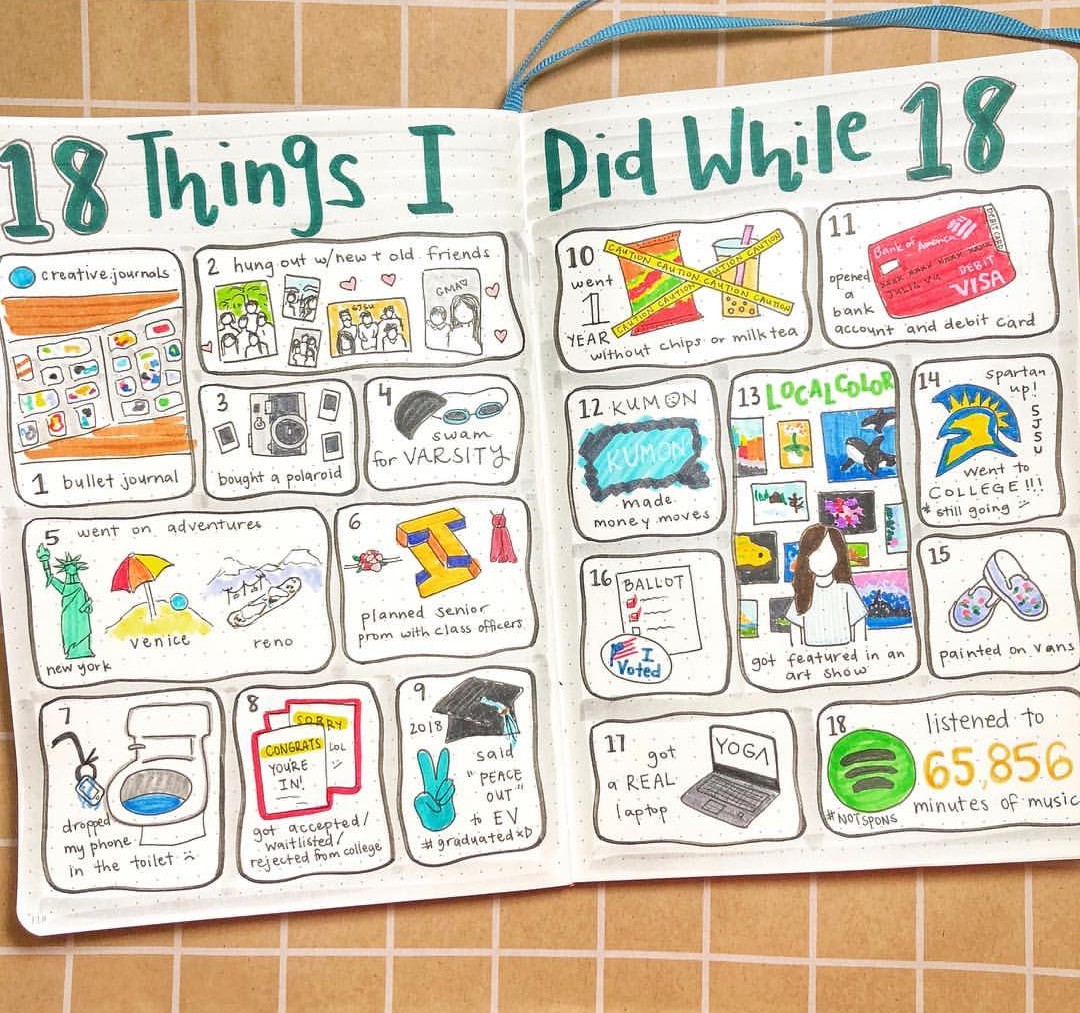 18 Things I
Did While 18
creative.journals
1 bullet journal
2 hung out w/new + old friends
SJSU
GMA
3
bought a polaroid
4
swam
for VARSITY
5 went on adventures
new york
venice
reno
6
planned senior
prom with class officers
7
dropped
my phone
in the toilet
8
SORRY
LOL
CONGRATS
YOU'RE
IN!
got accepted/
waitlisted/
rejected from college
9
2018
said
"PEACE
OUT"
to EV
#graduated xD
10
went
1
YEAR
CAUTION CAUTION CAUTION CAUTION
CAUTION CAUTION CAUTION
without chips or milk tea
11
Bank of America
DEBIT CARD
DEBIT
VISA
opened
a
bank
account and debit card
12 KUMON
KUMON
made
money moves
13 LOCAL COLOR
got featured in an
art show
14
spartan
up!
SJSU
went to
COLLEGE!!!
* still going
15
painted on vans
16
BALLOT
I
Voted
17
got
a REAL
laptop
YOGA
18
listened to
65,856
minutes of music
#NOTSPONS